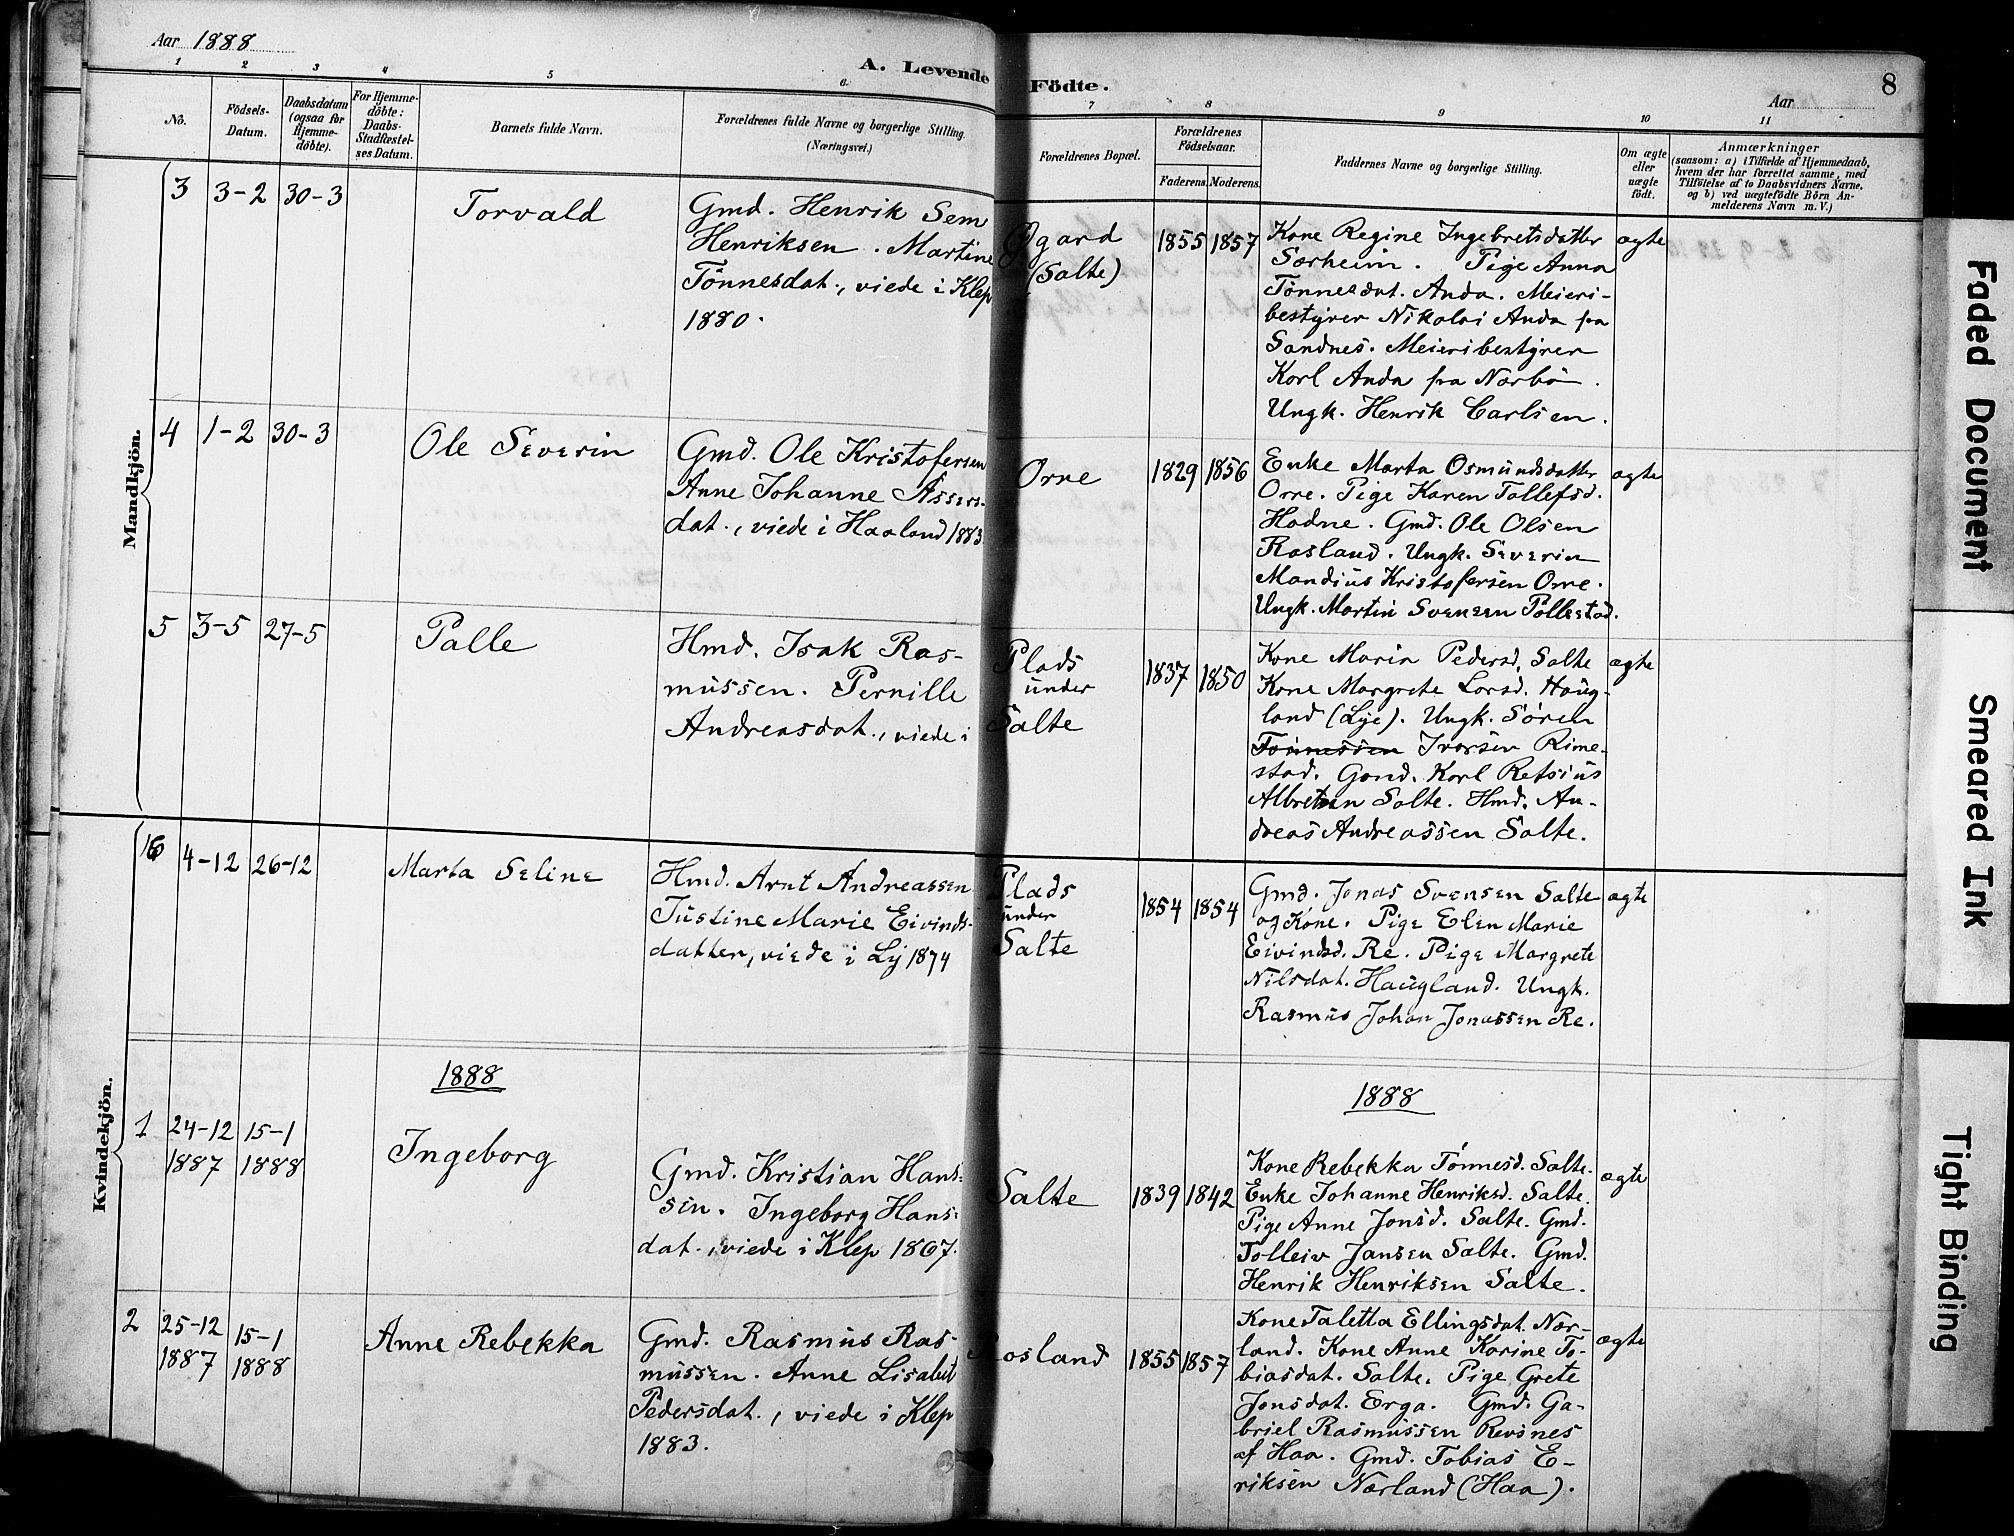 Aar 1888
A. Levende Födte.
8
Aar
1 2 3 4 5 6 7 8 9 10 11
No.
Födsels-
Datum.
Daabsdatum
(ogsaa for
Hjemme-
döbte).
For Hjemme-
döbte:
Daabs-
Stadfæstel-
ses Datum.
Barnets fulde Navn.
Forældrenes fulde Navne og borgerlige Stilling.
(Næringsvei.)
Forældrenes Bopæl.
Forældrenes
Födselsaar.
Faderens. Moderens.
Faddernes Navne og borgerlige Stilling.
Om ægte
eller
uægte
födt.
Anmærkninger
(saasom: a) i Tilfælde af Hjemmedaab,
hvem der har forrettet samme, med
Tilföielse af to Daabsvidners Navne,
og b) ved uægtefödte Börn An-
melderens Navn m. V.)
Mandkjön.
3 3-2 30-3
Torvald
Gmd. Henrik Sem
Henriksen. Martine
Tönnesdat., viede i Klep
1880.
Øgard
(Salte)
1855 1857
Kone Regine Ingebretsdatter
Særheim. Pige Anna
Tönnesdat. Anda. Meieri-
bestyrer Nikolai Anda fra
Sandnes. Meieribestyrer
Karl Anda fra Nærbö.
Ungk. Henrik Carlsen.
ægte
4 1-2 30-3
Ole Severin
Gmd. Ole Kristofersen
Anne Johanne Assers-
dat., viede i Haaland 1883
Orre
1829 1856
Enke Marta Osmundsdatter
Orre. Pige Karen Tollefsd.
Hodne. Gmd. Ole Olsen
Rosland. Ungk. Severin
Mandius Kristofersen Orre.
Ungk. Martin Svensen Pollestad.
ægte
5 3-5 27-5
Palle
Hmd. Isak Ras-
mussen. Pernille
Andreasdat., viede i
Plads
under
Salte
1837 1850
Kone Maria Pedersd. Salte
Kone Margrete Larsd. Haug-
land (Lye). Ungk. Sören
Tönnessen Ivarsen Rime-
stad. Gaard. Karl Refsius
Albretsen Salte. Hmd. An-
dreas Andreassen Salte.
ægte
16 4-12 26-12
Marta Seline
Hmd. Arnt Andreassen
Justine Marie Eivinds-
datter, viede i Ly 1874
Plads
under
Salte
1854 1854
Gmd. Jonas Svensen Salte
og Kone. Pige Elen Marie
Eivindsd. Re. Pige Margrete
Nilsdat. Haugland. Ungk.
Rasmus Johan Jonassen Re.
ægte
Kvindekjön.
1888
1888
1 24-12
1887
15-1
1888
Ingeborg
Gmd. Kristian Hans-
sen. Ingeborg Hans-
dat., viede i Klep 1867.
Salte
1839 1842
Kone Rebekka Tönnesd. Salte.
Enke Johanne Henriksd. Salte.
Pige Anne Jonsd. Salte. Gmd.
Tolleiv Jansen Salte. Gmd.
Henrik Henriksen Salte.
ægte
2 25-12
1887
15-1
1888
Anne Rebekka
Gmd. Rasmus Ras-
mussen. Anne Lisabet
Pedersdat., viede i Klep
1883.
Rosland
1855 1857
Kone Taletta Ellingsdat. Nær-
land. Kone Anne Karine To-
biasdat. Salte. Pige Grete
Jonsdat. Erga. Gmd. Ga-
briel Rasmussen Revsnes
af Haa. Gmd. Tobias E-
riksen Nærland (Haa).
ægte
Faded Document
Smeared Ink
Tight Binding